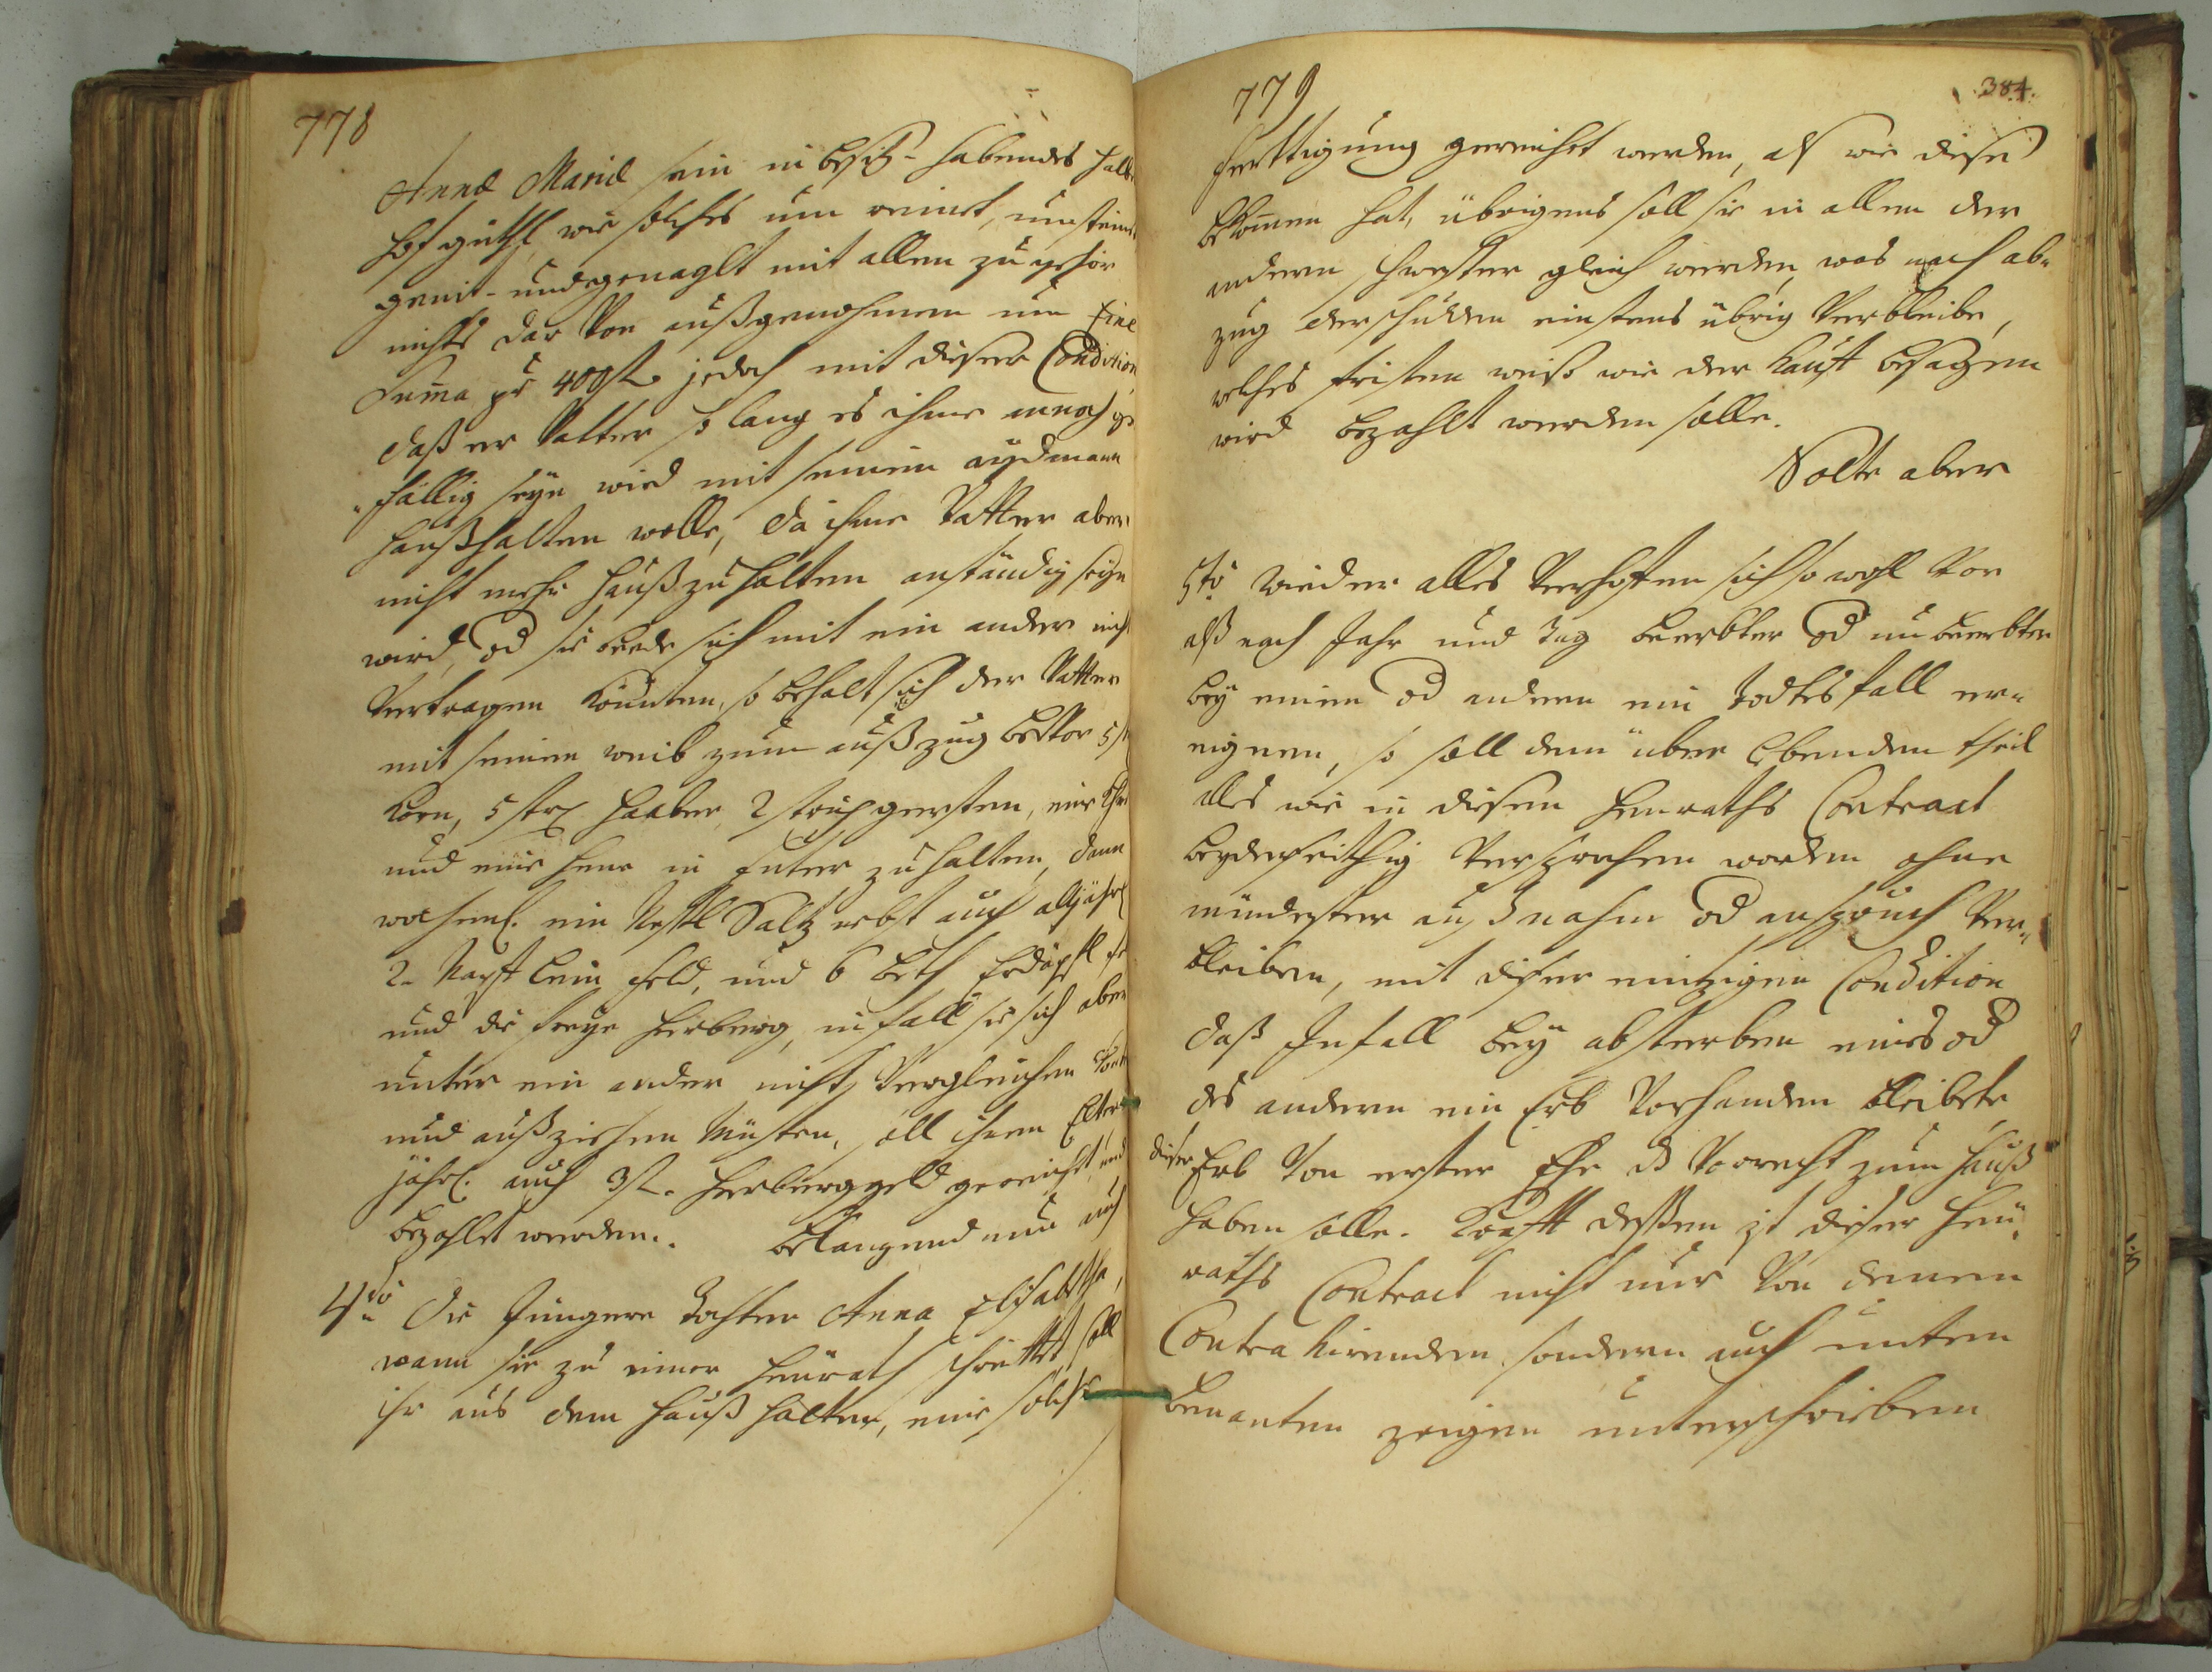 778
Annæ Mariæ sein in besitz-habendes halb
hofgüthl, wie solches um reint, umsteint
geniet- und genaglt mit allen zu gehör
nichts dar Von außgenohmen um Eine
Suma pr 400 fl. jedoch mit dieser Condition
daß er Vatter so lang es ihme annoch ge-
fällig seyn wird mit seinem aydmann
haußhalten wolle, da ihme Vatter aber
nicht mehr hauß zu halten anständig seyn
wird, od sie beede sich mit ein ander nicht
Vertragen könnten, so behalt sich der Vatter
mit seinem weib zum außzug bevor 5 st
Korn, 5 strich haaber, 2 strich gersten, eine Khue
und eine henn in futer zu halten, dann
wochentl. ein Nestl Saltz nebst auch alljährl
2 Napf lein feld, und 6 beth Erdäpfl
und die freye herberg, in fall sie sich aber
unter ein ander nicht Vergleichen
und außziehen müsten, soll ihnen Eltern
jährl. auch 3 fl. herberggeld gereicht und
bezahlt werden. Belangend nun auch
4to die Jüngere tochter Anna Elisabetha,
wann sie zu einer heürath schreittet soll
ihr aus dem hauß halter, eine solche
779
384.
ferttigung gereicht werden, als wie diese
bekomen hat, übrigens soll sie in allen der
andern schwester gleich werden, was nach ab-
zug der schulden einstens übrig Verbleibe,
welches fristen weiß wie der Kauf besagen
wird bezahlt werden solle.
Solte aber
5to wieder alles Verhoffen sich so wohl Vor
alß nach Jahr und Tag beerbter od unbeerbter
bey einem od andern ein todtesfall er-
eignen, so soll dem über Lebenden theil
alles wie in diesem heuraths Contract
beyderseithig Versprochen worden ohne
mündester außnahm od anspruch Ver-
bleiben, mit dieser eintzigen Condition
daß Infall bey absterben eines od
des andern ein Erb Vorhanden bleibete
dieser Erb Von erster Ehe das Vorrecht zum hauß
haben solle. Krafft dessen ist dieser heü-
raths Contract nicht nur Von denen
Contrahirenden, sondern auch unten
benanten zeigen unterschrieben